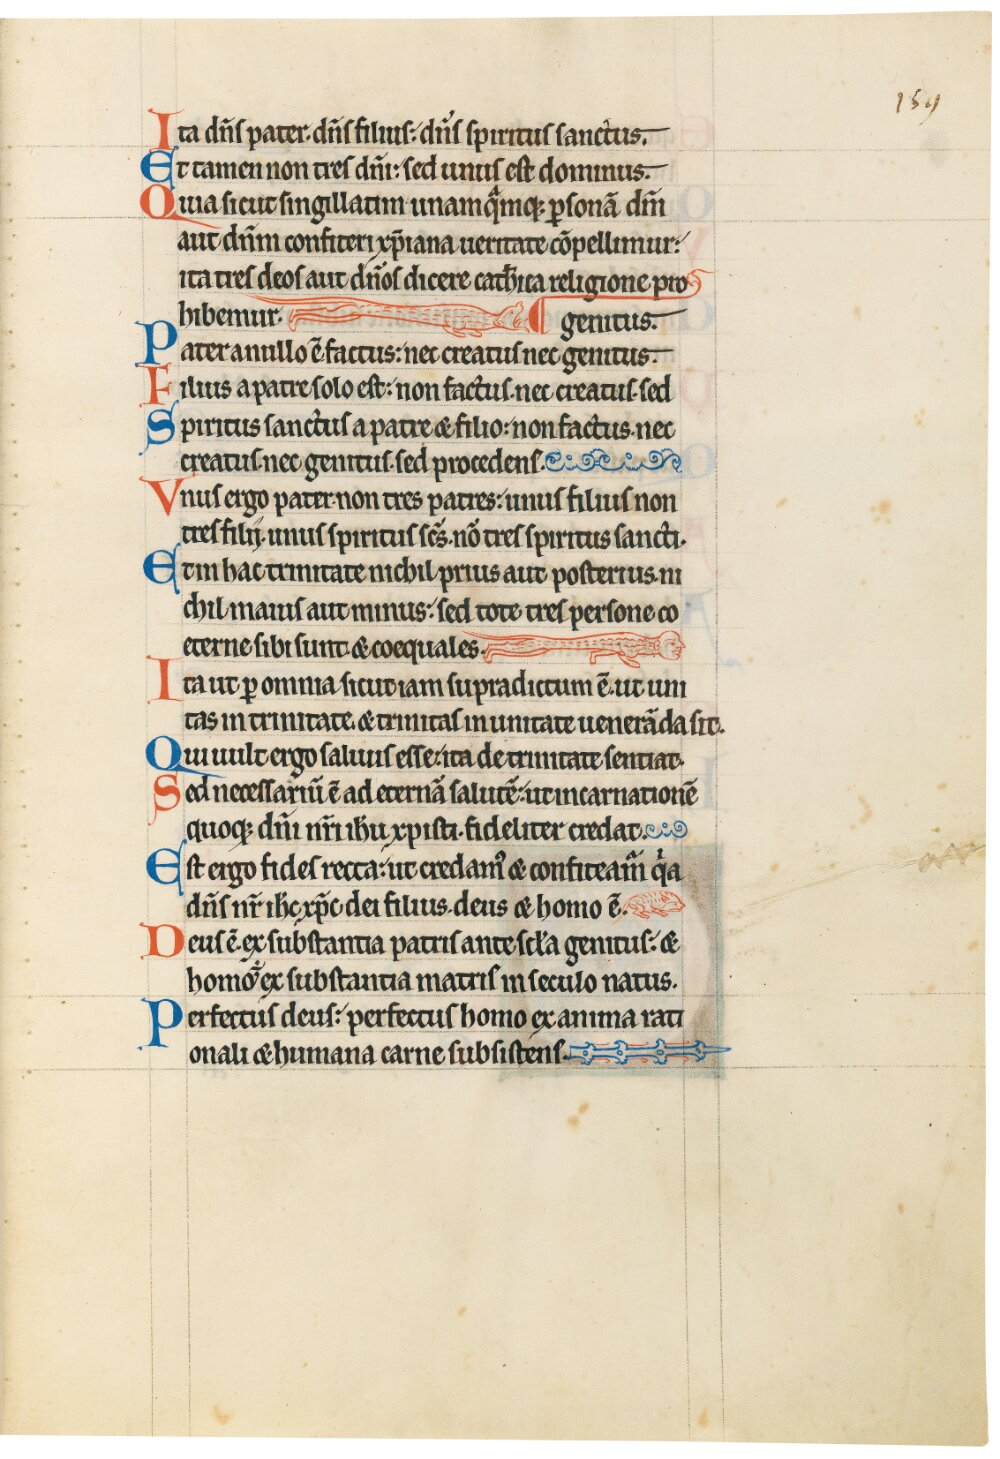 159
Ita dn̄s pater. dn̄s filius: dn̄s spiritus sanctus.
Et tamen non tres dn̄i: sed unus est dominus.
Quia sicut singillatim unamq̄mq; p̱sonā dm̄
aut dn̄m confiteri xp̄iana ueritate cōpellimur:
ita tres deos aut dn̄os dicere cath̄ica religione pro
hibemur. genitus.
Pater a nullo ē factus: nec creatus nec genitus.
Filius a patre solo est: non factus. nec creatus. sed
Spiritus sanctus a patre & filio: non factus. nec
creatus. nec genitus. sed procedens.
Vnus ergo pater. non tres patres: unus filius non
tres filij. unus spiritus sc̄s. nō tres spiritus sancti.
Et in hac trinitate nichil prius aut posterius. ni
chil maius aut minus: sed tote tres persone co
eterne sibi sunt. & coequales.
Ita ut p̱ omnia sicut iam supradictum ē. ut uni
tas in trinitate. & trinitas in unitate uenerāda sit.
Qui uult ergo saluus esse: ita de trinitate sentiat.
Sed necessariū ē ad eternā salutē: ut incarnationē
quoq; dn̄i nr̄i ihu xpisti. fideliter credat.
Est ergo fides recta: ut credamꝰ & confiteam̄ qͥa
dn̄s nr̄ ihc xp̄c dei filius. deus & homo ē.
Deus ē ex substantia patris ante scl̄a genitus: &
homo ē ex substantia matris in seculo natus.
Perfectus deus: perfectus homo ex anima rati
onali & humana carne subsistens.